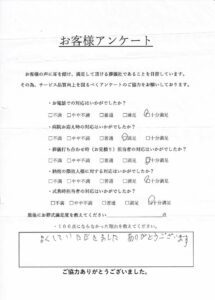 お客様アンケート
お客様の声に耳を傾け、満足して頂ける葬儀社であることを目指しています。
その為、サービス品質向上を図るべくアンケートのご協力をお願いしております。
・お電話での対応はいかがでしたか?
□不満 □やや不満 □普通 □満足 □十分満足
・病院お迎え時の対応はいかがでしたか?
□不満 □やや不満 □普通 □満足 □十分満足
・葬儀打ち合わせ時(お見積り)担当者の対応はいかがでしたか?
□不満 □やや不満 □普通 □満足 □十分満足
・納棺の際の担当者の対応はいかがでしたか?
□不満 □やや不満 □普通 □満足 □十分満足
・式典時担当者の対応はいかがでしたか?
□不満 □やや不満 □普通 □満足 □十分満足
最後にお葬式満足度を教えてください
・100点にならなかった理由を教えてください。
よくしていただきました ありがとうございます
ご協力ありがとうございました。